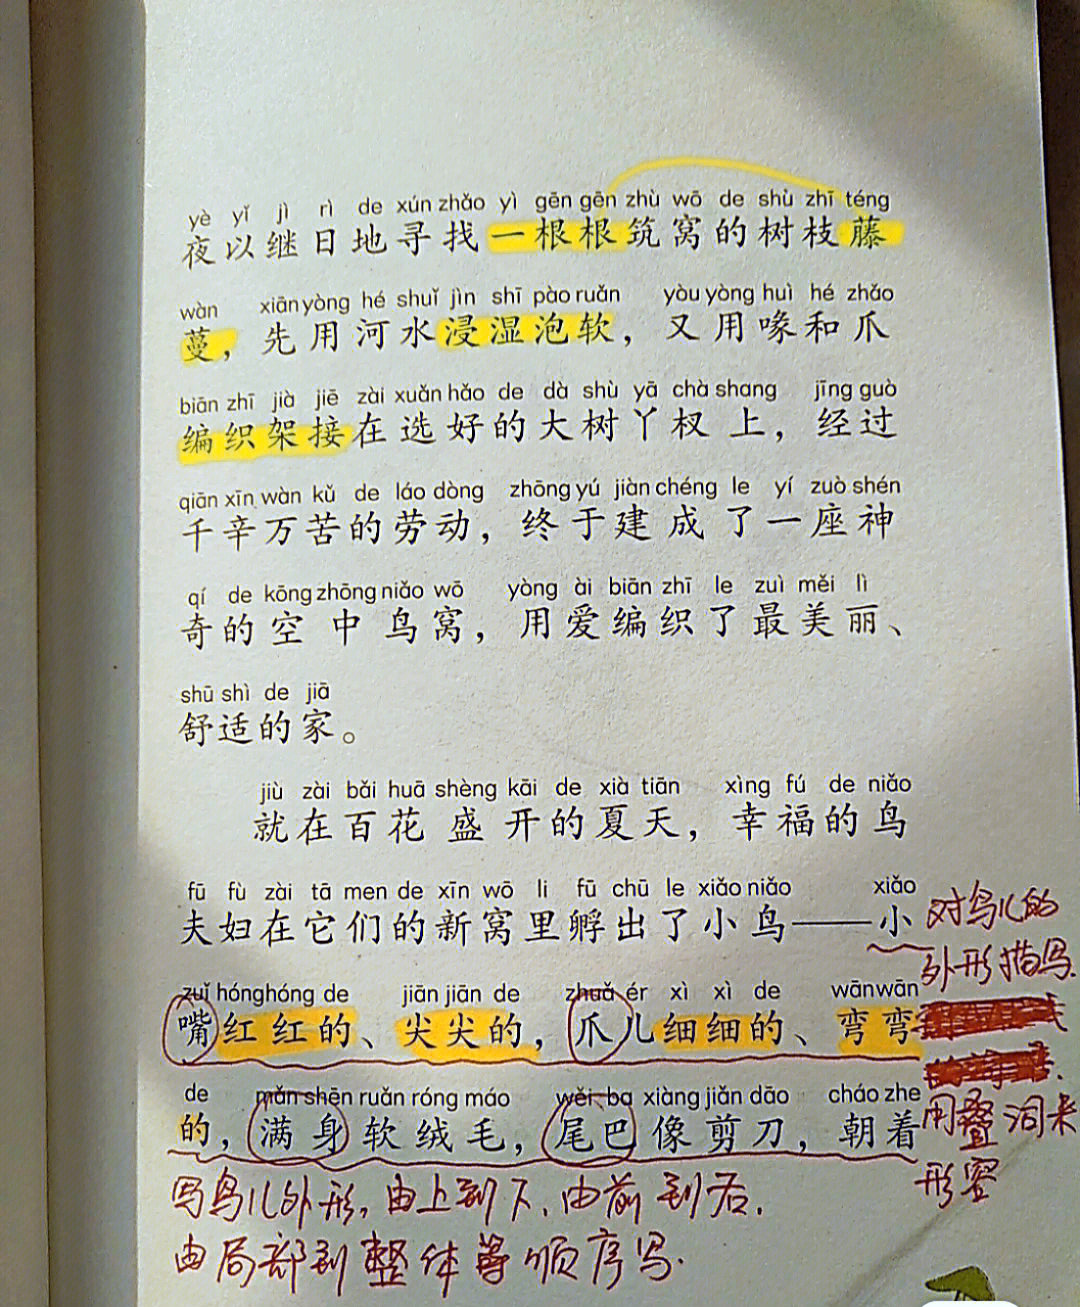 yè yǐ jì rì de xún zhǎo yì gēn gēn zhù wō de shù zhī téng
夜以继日地寻找一根根筑窝的树枝藤
wàn xiān yòng hé shuǐ jìn shī pào ruǎn yòu yòng huì hé zhǎo
蔓，先用河水浸湿泡软，又用喙和爪
biān zhī jià jiē zài xuǎn hǎo de dà shù yā chà shang jīng guò
编织架接在选好的大树丫杈上，经过
qiān xīn wàn kǔ de láo dòng zhōng yú jiàn chéng le yí zuò shén
千辛万苦的劳动，终于建成了一座神
qí de kōng zhōng niǎo wō yòng ài biān zhī le zuì měi lì
奇的空中鸟窝，用爱编织了最美丽、
shū shì de jiā
舒适的家。
jiù zài bǎi huā shèng kāi de xià tiān xìng fú de niǎo
就在百花盛开的夏天，幸福的鸟
fū fù zài tā men de xīn wō li fū chū le xiǎo niǎo xiǎo
夫妇在它们的新窝里孵出了小鸟——小
zuǐ hónghóng de jiān jiān de zhuǎ ér xì xì de wānwān
嘴红红的、尖尖的，爪儿细细的、弯弯
de mǎn shēn ruǎn róng máo wěi ba xiàng jiǎn dāo cháo zhe
的，满身软绒毛，尾巴像剪刀，朝着
对鸟儿的
外形描写.
用叠词来
形容
写鸟儿外形，由上到下、由前到后.
由局部到整体等顺序写.